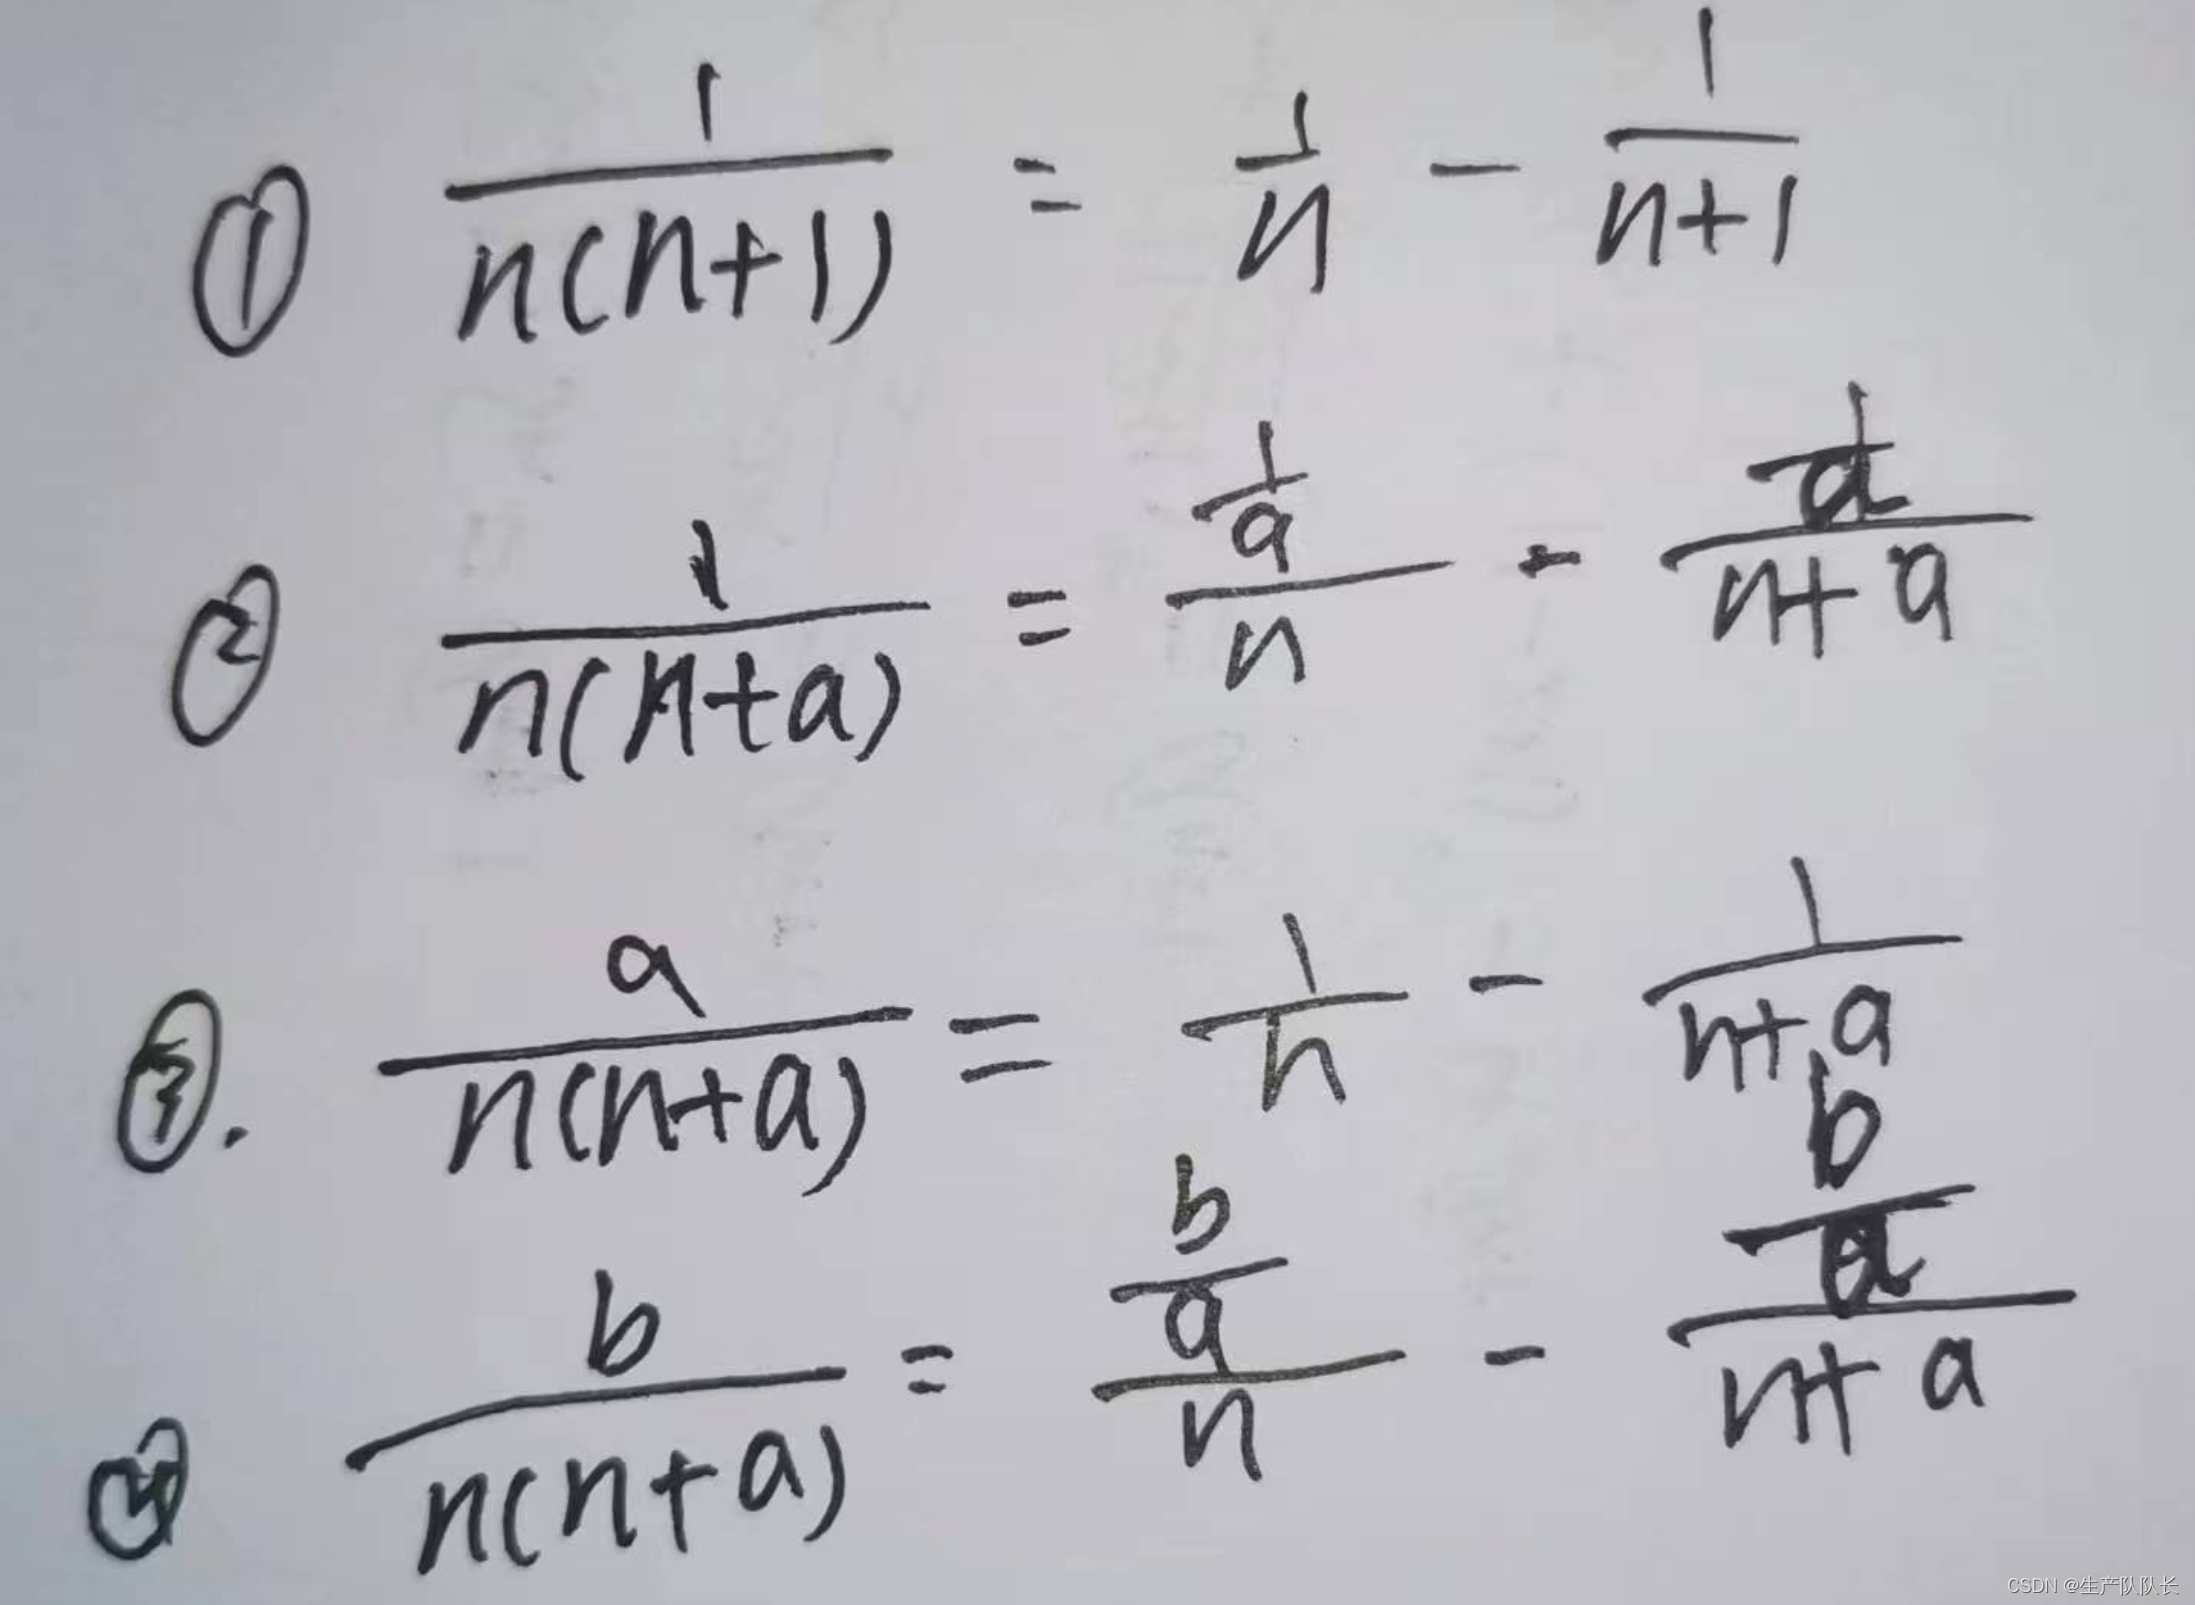 ① \frac{1}{n(n+1)} = \frac{1}{n} - \frac{1}{n+1}
② \frac{1}{n(n+a)} = \frac{\frac{1}{a}}{n} - \frac{\frac{1}{a}}{n+a}
③. \frac{a}{n(n+a)} = \frac{1}{n} - \frac{1}{n+a}
④ \frac{b}{n(n+a)} = \frac{\frac{b}{a}}{n} - \frac{\frac{b}{a}}{n+a}
CSDN @生产队队长